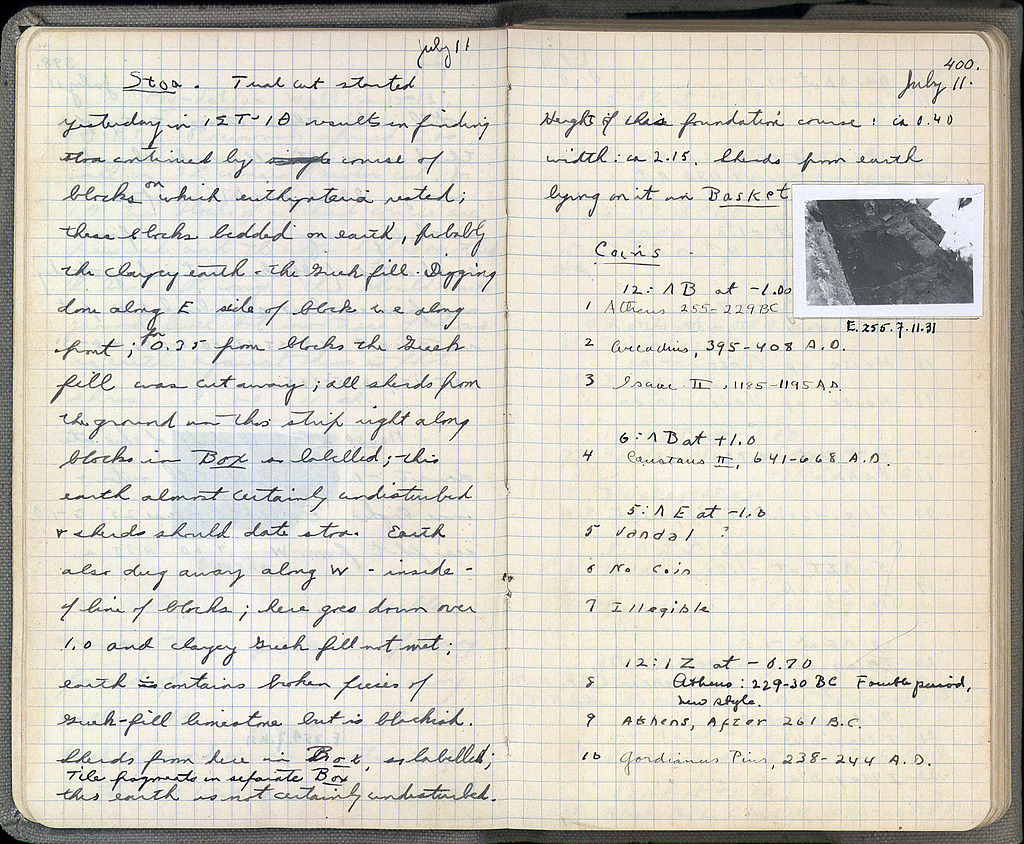 July 11
Stoa. Trial cut started
yesterday in 12 T-18 results in finding
stoa continued by course of
blocks on which euthynteria rested;
these blocks bedded on earth, probably
the clayey earth - the Greek fill. Digging
done along E side of block i.e. along
front; for 0.35 from blocks the Greek
fill was cut away; all sherds from
the ground in this strip right along
blocks in Box as labelled; this
earth almost certainly undisturbed
+ sherds should date stoa. Earth
also dug away along W - inside -
of line of blocks; here goes down over
1.0 and clayey Greek fill not met;
earth contains broken pieces of
Greek-fill limestone but is blackish.
Sherds from here in Box, as labelled;
Tile fragments in separate Box
this earth is not certainly undisturbed.
400.
July 11.
Height of this foundation course: ca 0.40
width: ca 2.15. Sherds from earth
lying on it in Basket
E.255.7.11.31
Coins
12: ΛB at -1.00
1 Athens 255-229 BC
2 Arcadius, 395-408 A.D.
3 Isaac II, 1185-1195 A.D.
6: ΛB at +1.0
4 Constans II, 641-668 A.D.
5: ΛE at -1.0
5 Vandal ?
6 No coin
7 Illegible
12: 1 Z at -0.70
8 Athens: 229-30 BC Fourth period,
new style.
9 Athens, After 261 B.C.
10 Gordianus Pius, 238-244 A.D.